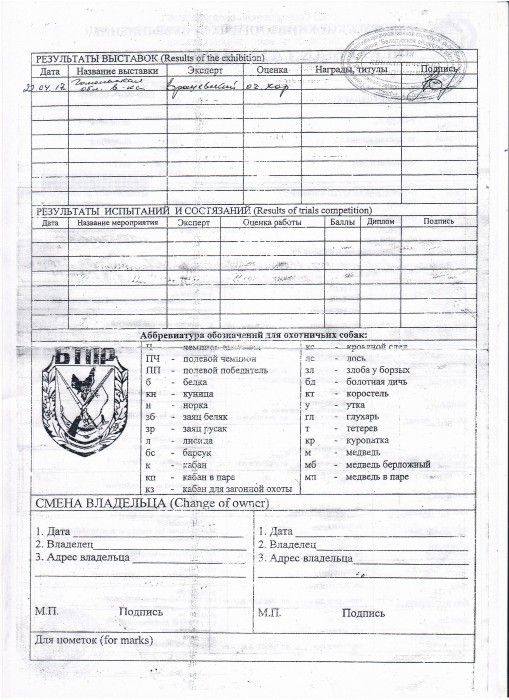 РЕЗУЛЬТАТЫ ВЫСТАВОК (Results of the exhibition)
Дата Название выставки Эксперт Оценка Награды, титулы Подпись
22.04.12 оч. хор
РЕЗУЛЬТАТЫ ИСПЫТАНИЙ И СОСТЯЗАНИЙ (Results of trials competition)
Дата Название мероприятия Эксперт Оценка работы Баллы Диплом Подпись
Аббревиатура обозначений для охотничьих собак:
БТПР
Ч - чемпион кс - кровяной след
ПЧ - полевой чемпион лс - лось
ПП - полевой победитель зл - злоба у борзых
б - белка бд - болотная дичь
кн - куница кт - коростель
н - норка у - утка
зб - заяц беляк гл - глухарь
зр - заяц русак т - тетерев
л - лисица кр - куропатка
бс - барсук м - медведь
к - кабан мб - медведь берложный
кп - кабан в паре мп - медведь в паре
кз - кабан для загонной охоты
СМЕНА ВЛАДЕЛЬЦА (Change of owner)
1. Дата 1. Дата
2. Владелец 2. Владелец
3. Адрес владельца 3. Адрес владельца
М.П. Подпись М.П. Подпись
Для пометок (for marks)